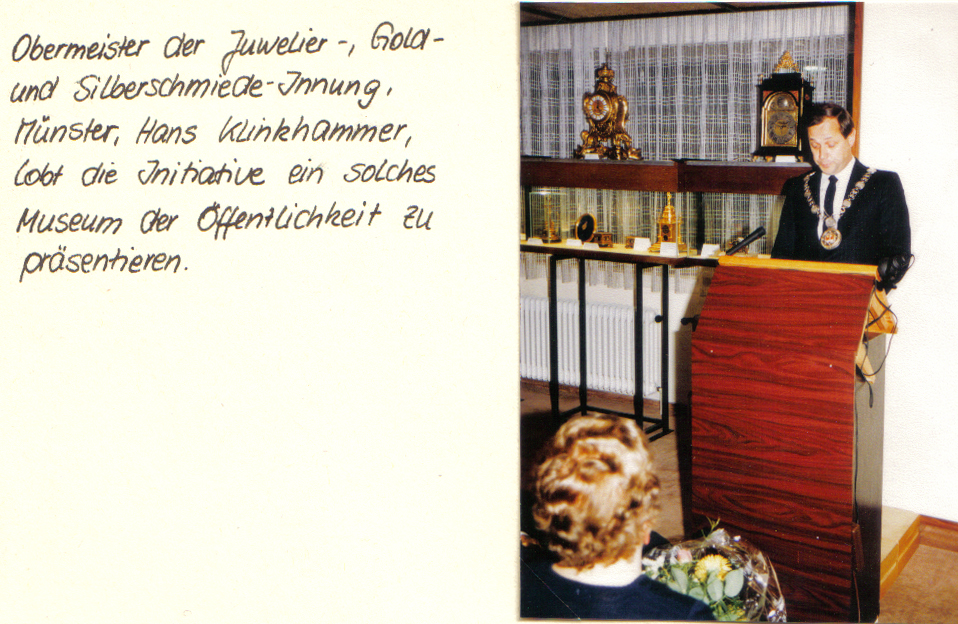 Obermeister der Juwelier-, Gold-
und Silberschmiede-Innung,
Münster, Hans Klinkhammer,
lobt die Initiative ein solches
Museum der Öffentlichkeit zu
präsentieren.